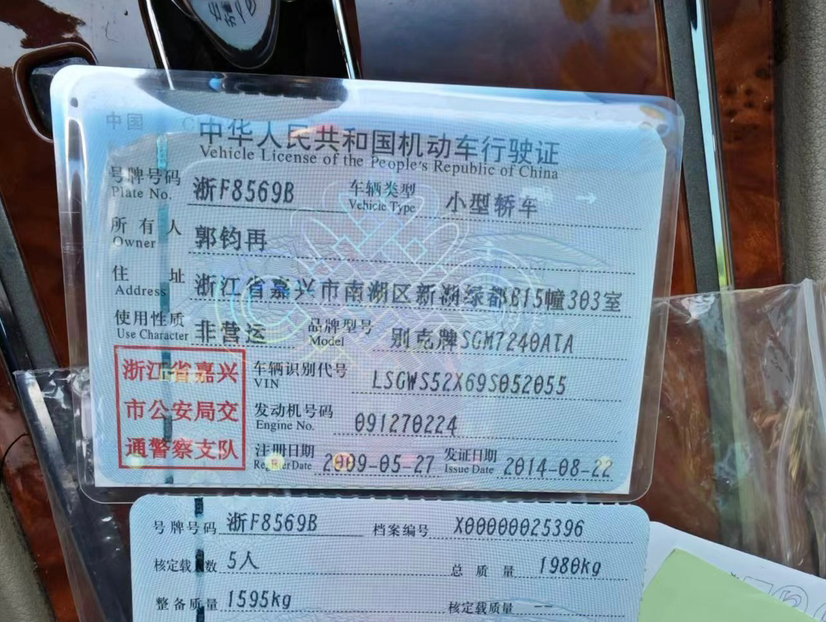 中国
中华人民共和国机动车行驶证
Vehicle License of the People's Republic of China
号牌号码 浙F8569B 车辆类型 小型轿车
Plate No. Vehicle Type
所有人 郭钧再
Owner
住址 浙江省嘉兴市南湖区新湖绿都B15幢303室
Address
使用性质 非营运 品牌型号 别克牌SGM7240ATA
Use Character Model
浙江省嘉兴 车辆识别代号 LSGWS52X69S052055
VIN
市公安局交 发动机号码 091270224
Engine No.
通警察支队 注册日期 2009-05-27 发证日期 2014-08-22
Register Date Issue Date
号牌号码 浙F8569B 档案编号 X00000025396
核定载人数 5人 总质量 1980kg
整备质量 1595kg 核定载质量 --